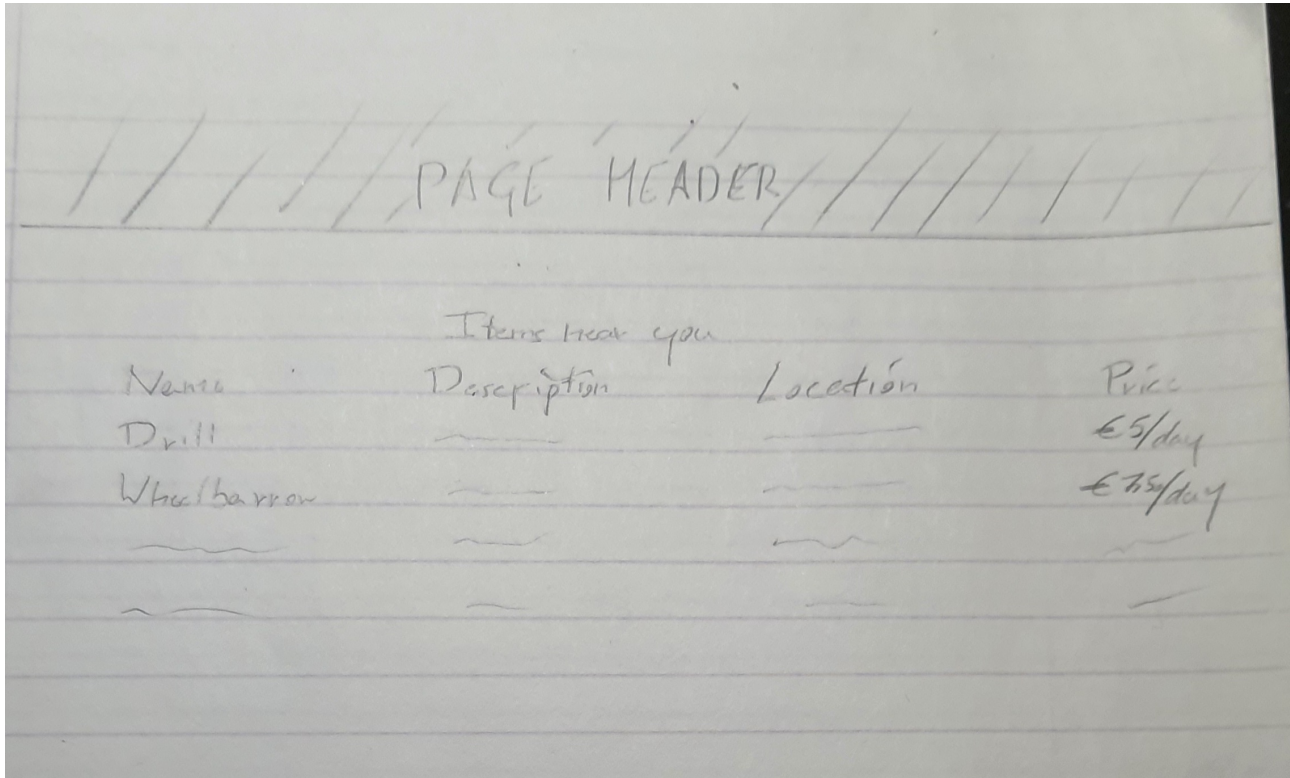 PAGE HEADER
Items near you
Name Description Location Price
Drill €5/day
Wheelbarrow €7,50/day